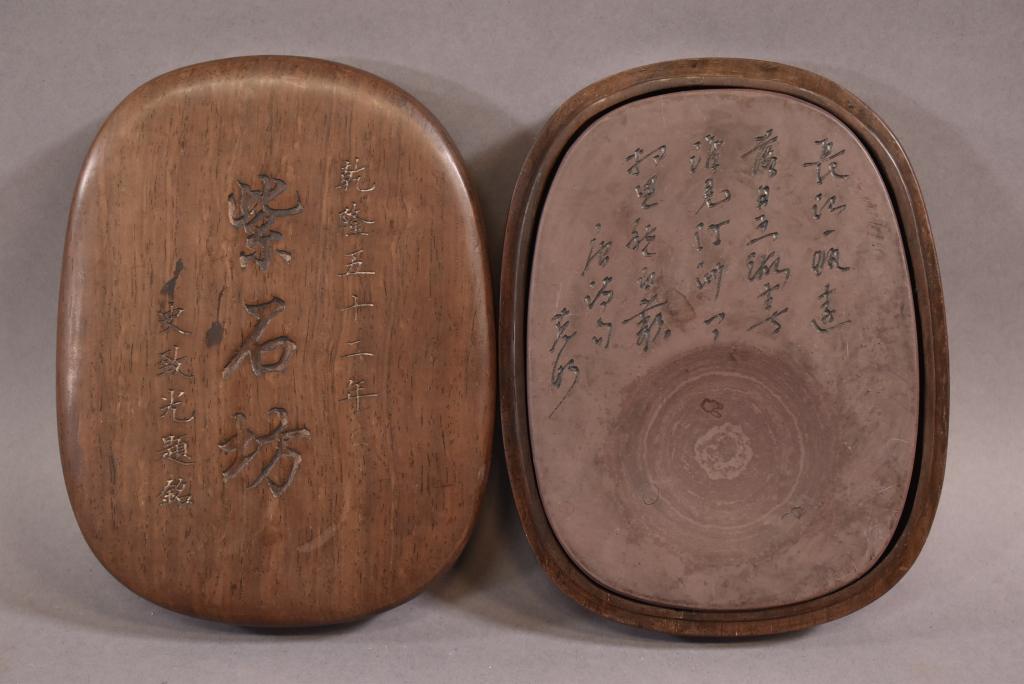 乾隆五十二年
紫石坊
史致光題銘
長江一帆遠
落日五湖春
誰見汀洲上
相思愁白蘋
唐詩句